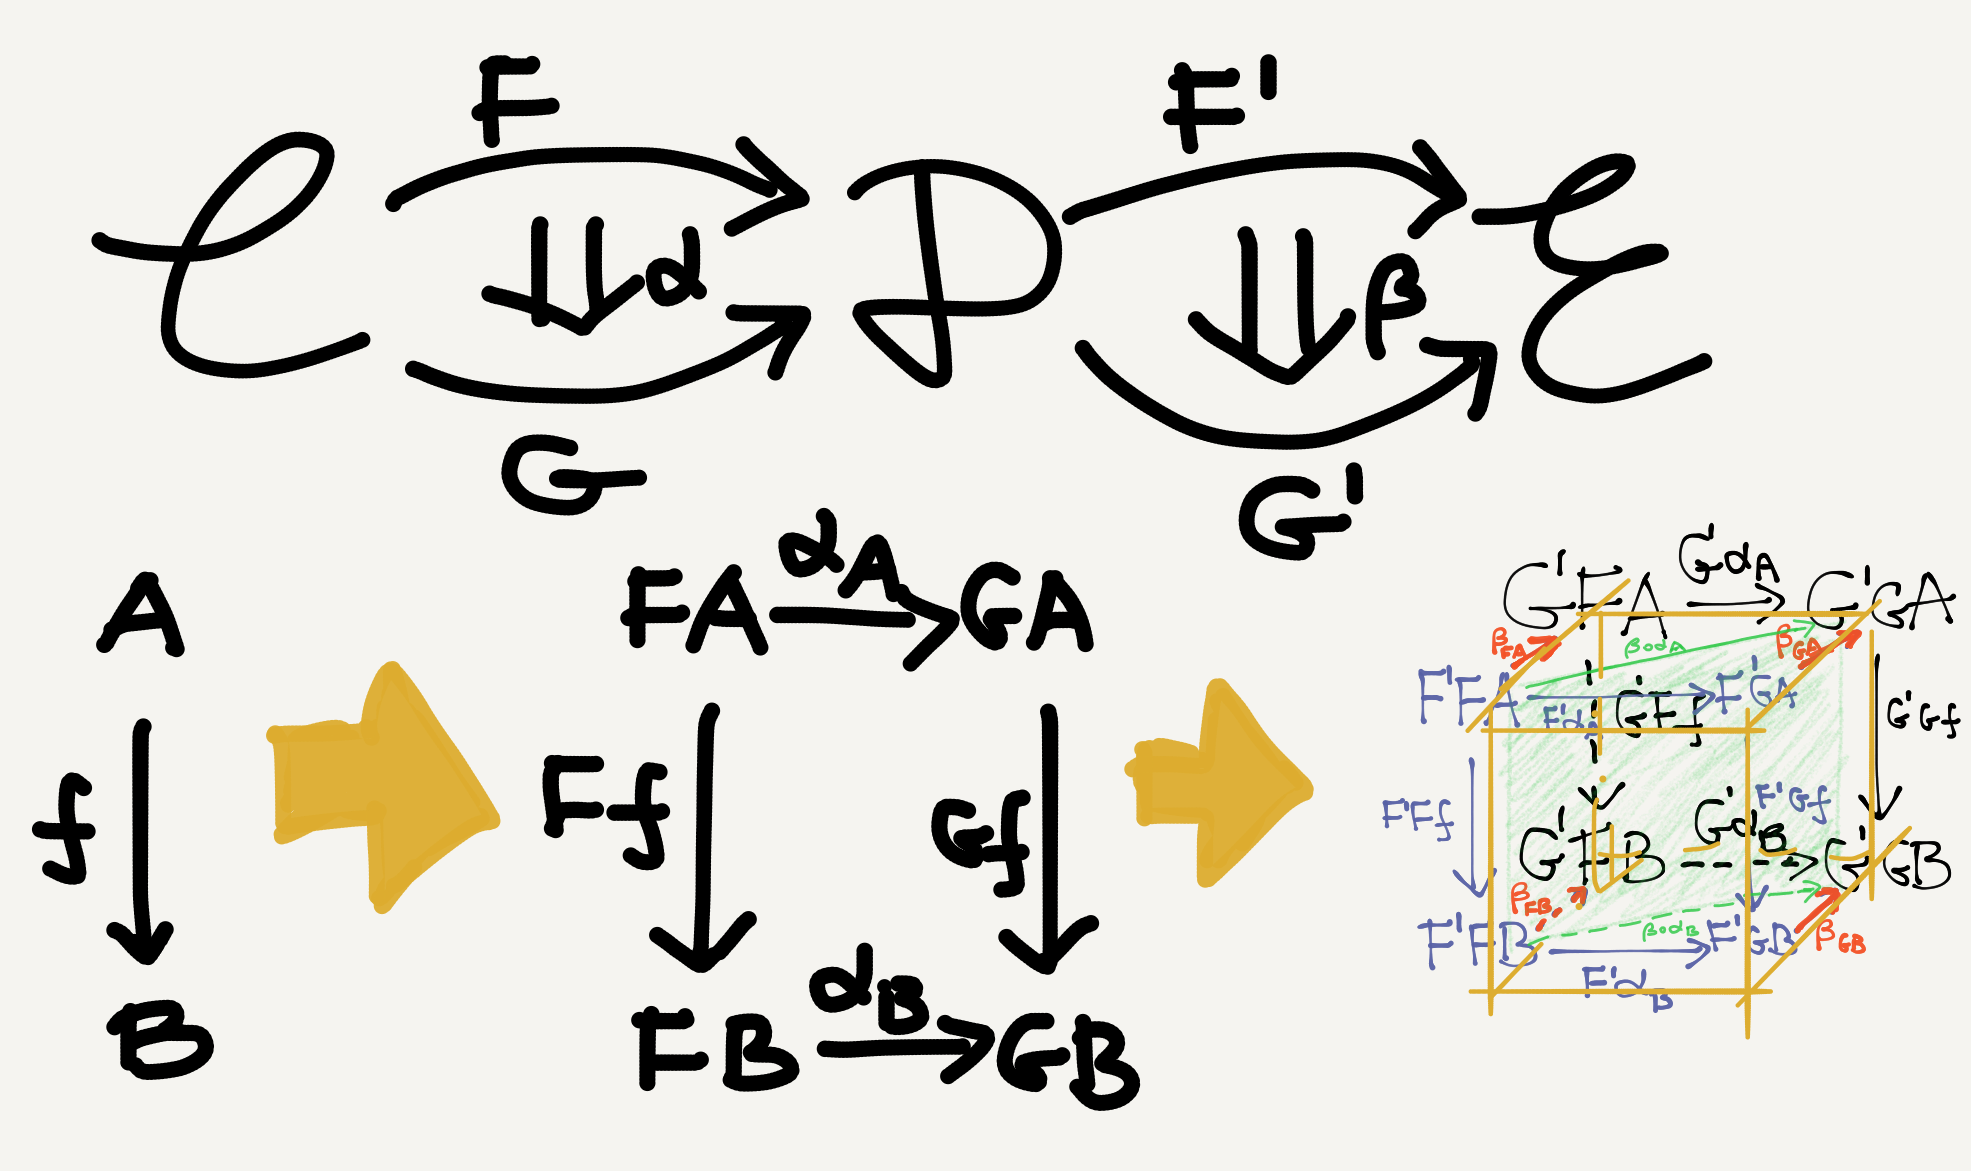 F F'
𝒞 α 𝒟 β ℰ
G G'
A
f
B
FA αA GA
Ff Gf
FB αB GB
G'FA G'αA G'GA
βFA β∘αA βGA
F'FA F'αA G'Ff F'GA G'Gf
F'Ff F'Gf
G'FB G'αB G'GB
βFB
F'FB β∘αB F'GB βGB
F'αB